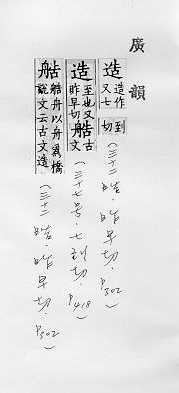 廣韻
造 造作又七到切 (三十二皓·昨早切·P302)
造 至也又昨早切艁古文 (三十七号·七到切·P418)
艁 艁舟以舟為橋說文云古文造 (三十二皓·昨早切·P302)